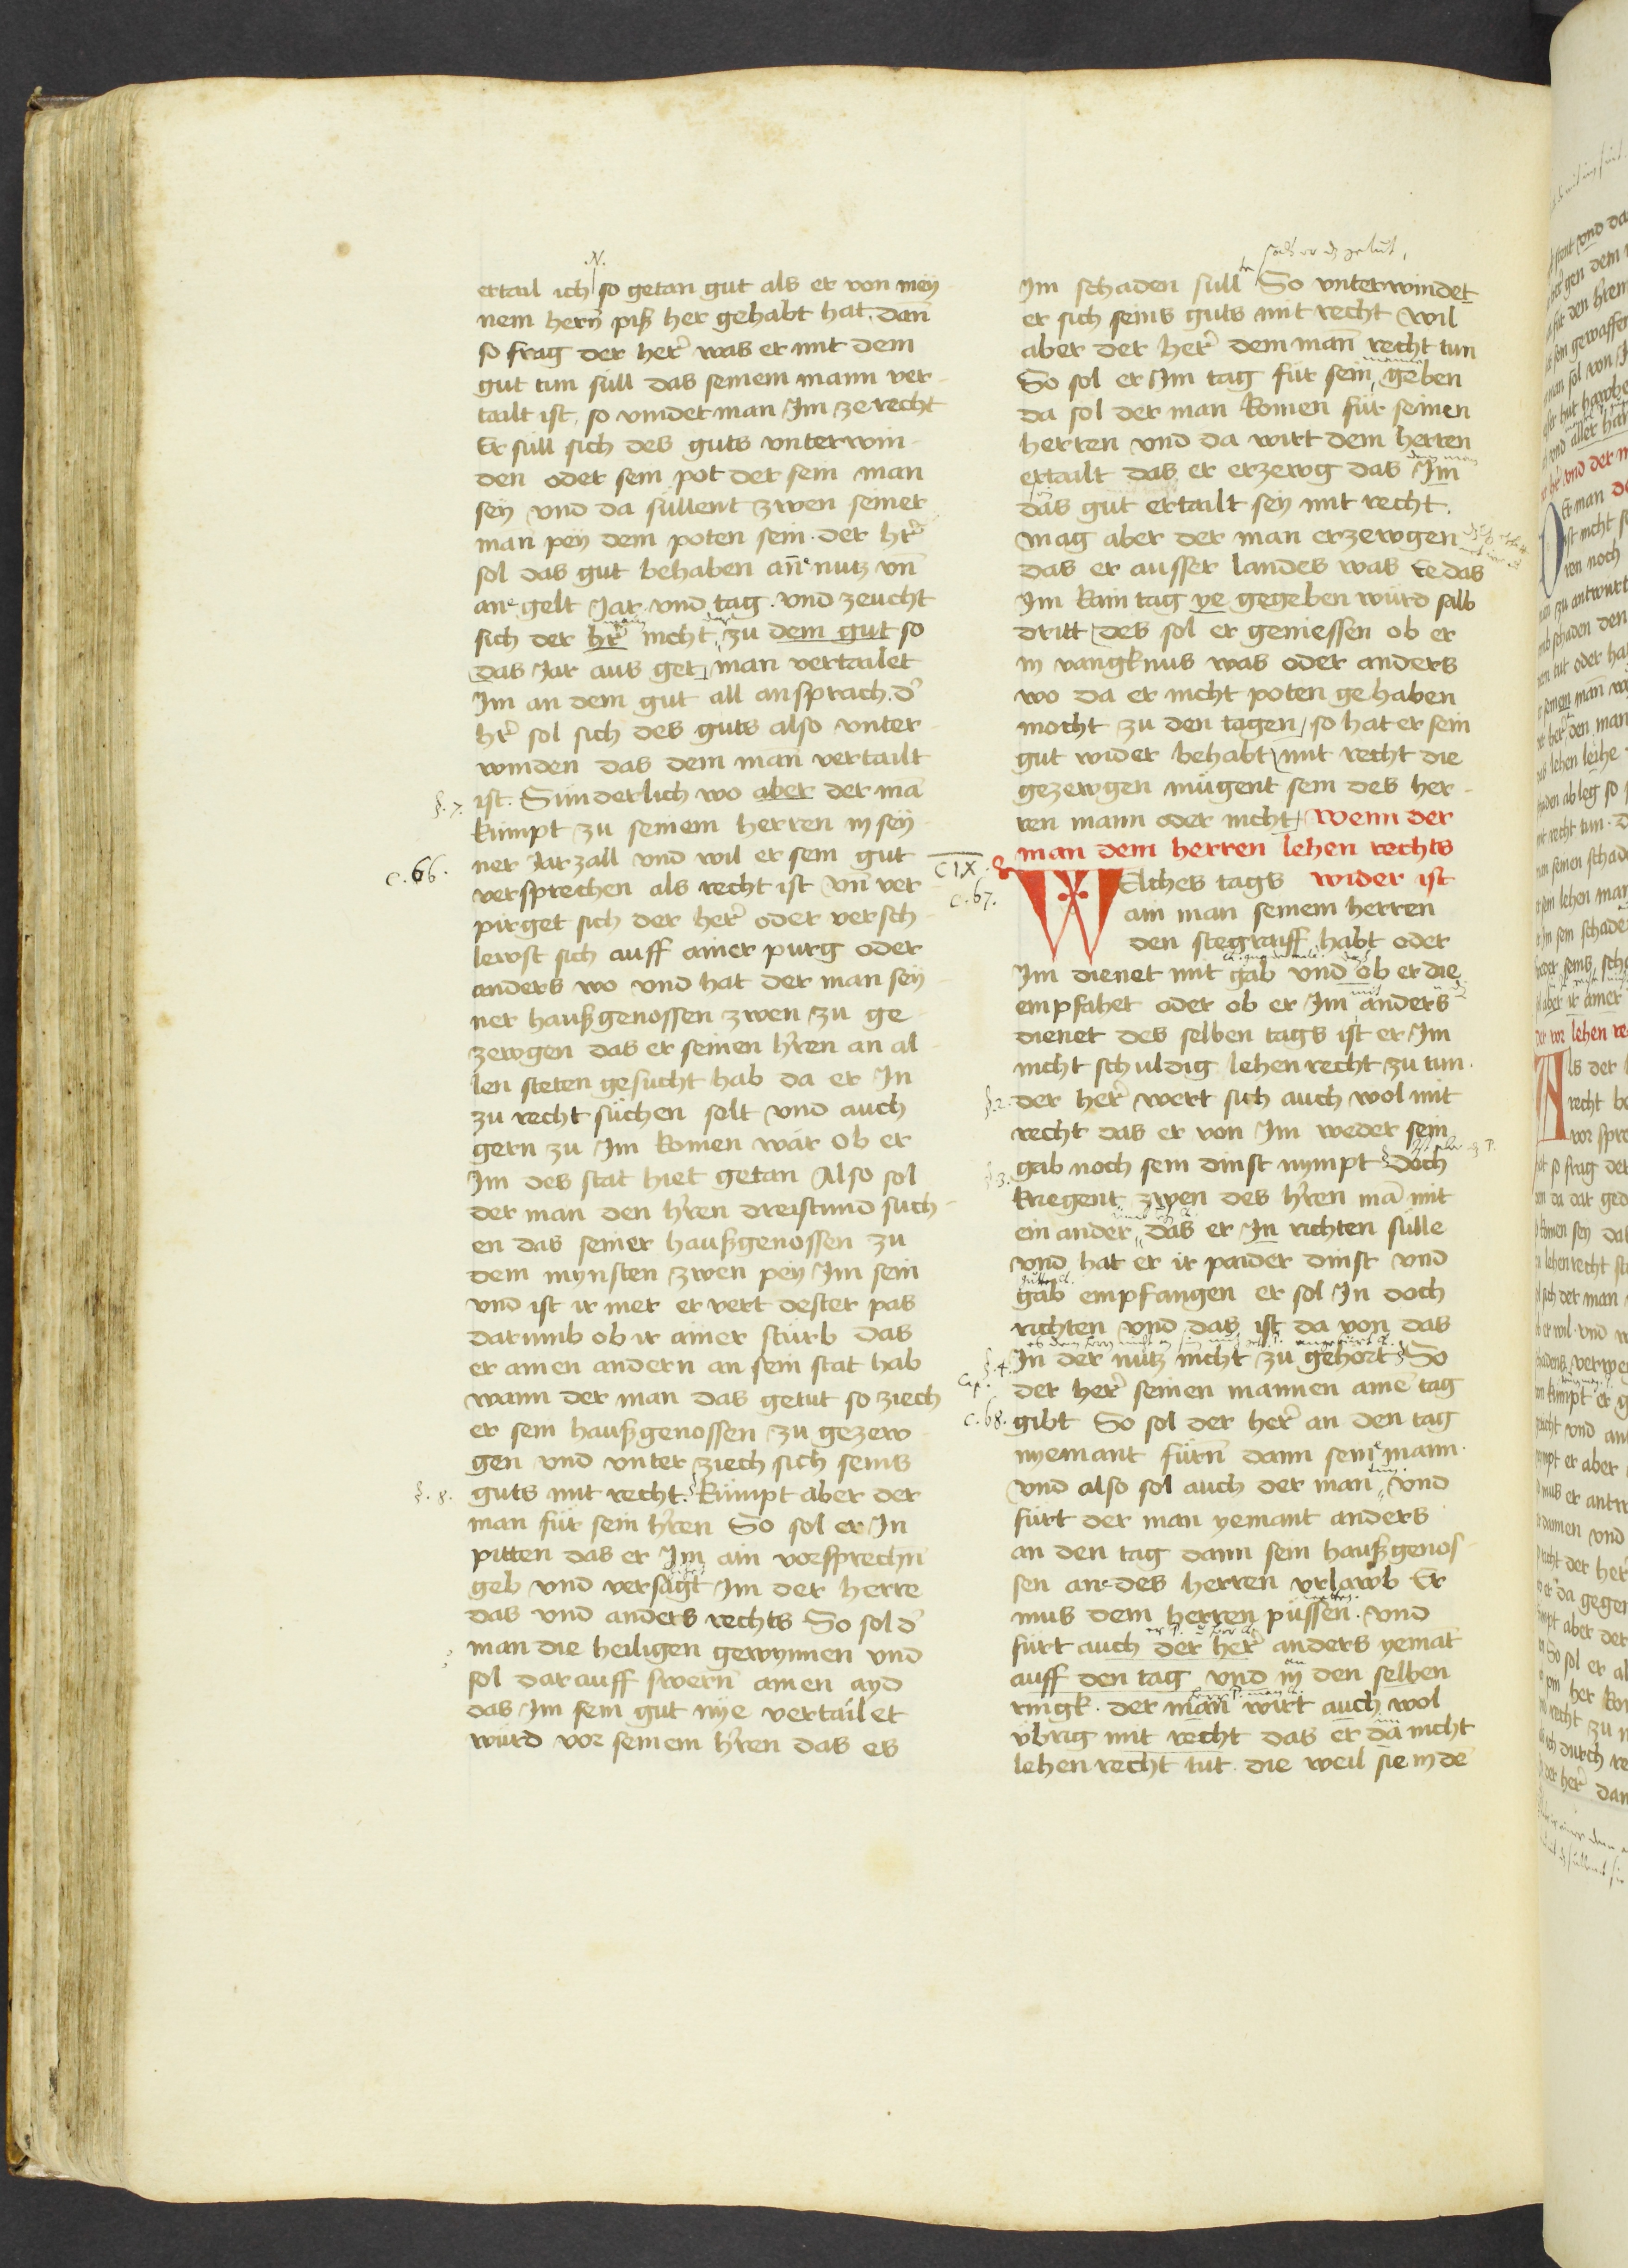 ertail ich so getan gut als er von mey
nem hern piß her gehabt hat. dan̄
so frag der her̄ was er mit dem
gut tun süll das seinem mann ver
tailt ist, so vindet man Im ze recht
Er süll sich des guts vnterwin
den oder sein pot der sein man
seÿ vnd da süllent zwen seiner
man peÿ dem poten sein. der hr̄
sol das gut behaben an̄e nutz vn̄
ane gelt Jar vnd tag. vnd zeucht
sich der hr̄ nicht zu dem gut so
das Jar aus get, man vertailet
Im an dem gut all ansprach. d̄
hr̄ sol sich des guts also vnter
winden das dem man vertailt
§. 7. ist. Sunderlich wo aber der mā
kümpt zu seinem herren in seÿ
c. 66. ner Jarzall vnd wil er sein gut
versprechen als recht ist vn̄ ver
pirget sich der her̄ oder versch
lewst sich auff ainer purg oder
anders wo vnd hat der man seÿ
ner haußgenossen zwen zu ge
zewgen das er seinen hren an al
len steten gesucht hab da er In
zu recht süchen solt vnd auch
gern zu Im komen wär ob er
Im des stat hiet getan Also sol
der man den hren dreistund such
en das seiner haußgenossen zu
dem mynsten zwen peÿ Im sein
vnd ist ir mer er vert dester pas
darumb ob ir ainer stürb das
er ainen andern an sein stat hab
wann der man das getut so ziech
er sein haußgenossen zu gezew
gen vnd vnter ziech sich seins
§. 8. guts mit recht. kümpt aber der
man für sein hren So sol er In
pitten das er Im ain vorsprechn̄
geb vnd versagt Im der herre
das vnd anders rechts So sol d̄
man die heiligen gewynnen vnd
sol darauff swern̄ ainen ayd
das Im sein gut nye vertailet
würd vor seinem hren das es
Im schaden süll So vnterwindet
er sich seins guts mit recht wil
aber der her̄ dem man̄ recht tun
So sol er Im tag für sein geben
da sol der man komen für seinen
herren vnd da wirt dem herren
ertailt das er erzewg das Im
das gut ertailt seÿ mit recht.
mag aber der man erzewgen
das er ausser landes was Ee das
Im kain tag ye gegeben würd selb
dritt des sol er geniessen ob er
in vangknus was oder anders
wo da er nicht poten gehaben
mocht zu den tagen, so hat er sein
gut wider behabt mit recht die
gezewgen mügent sein des her
ren mann oder nicht, wenn der
CIX. man dem herren lehen rechts
c. 67. WElches tags wider ist
ain man seinem herren
den stegraiff habt oder
Im dienet mit gab vnd ob er die
empfahet oder ob er Im anders
dienet des selben tags ist er Im
nicht schuldig lehen recht zu tun.
§. 2. der her̄ wert sich auch wol mit
recht das er von Im weder sein
§. 3. gab noch sein dinst nympt doch
kriegent zwen des hren mā mit
ein ander das er In richten sülle
vnd hat er ir paider dinst vnd
gab empfangen er sol In doch
richten vnd das ist da von das
§. 4. In der nutz nicht zu gehort So
Cap. der her̄ seinen mannen aine tag
c. 68. gibt So sol der her̄ an den tag
nyemant fürn̄ dann seine mann.
vnd also sol auch der man vnd
fürt der man yemant anders
an den tag dann sein haußgenos
sen ane des herren vrlawb Er
mus dem herren püssen. vnd
fürt auch der her̄ anders yemāt
auff den tag vnd in den selben
ringk. der man wirt auch wol
vbrig mit recht das er da nicht
lehen recht tut. die weil sie in de